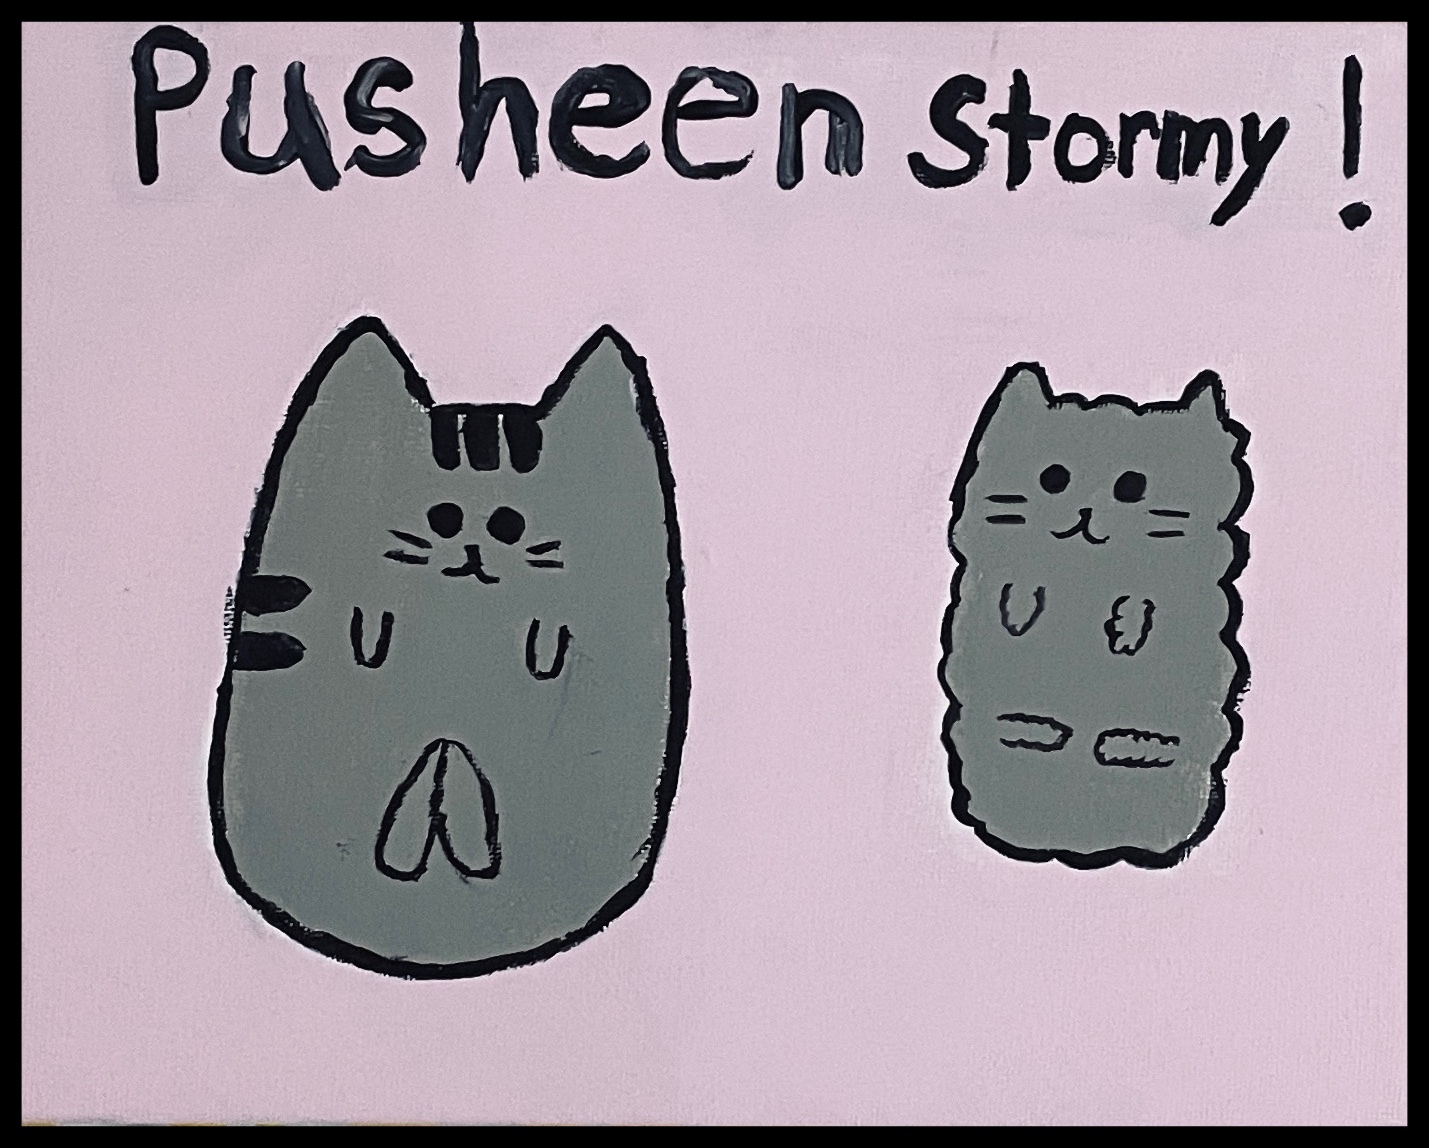 Pusheen Stormy!